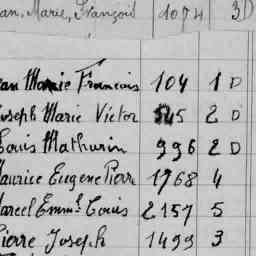 an, Marie, François 1074 3D
ean Marie Francois 104 1 D
Joseph Marie Victor 545 2 D
Louis Mathurin 996 2 D
Maurice Eugene Pierre 1768 4
Marcel Emm.l Louis 2157 5
Pierre Joseph 1499 3